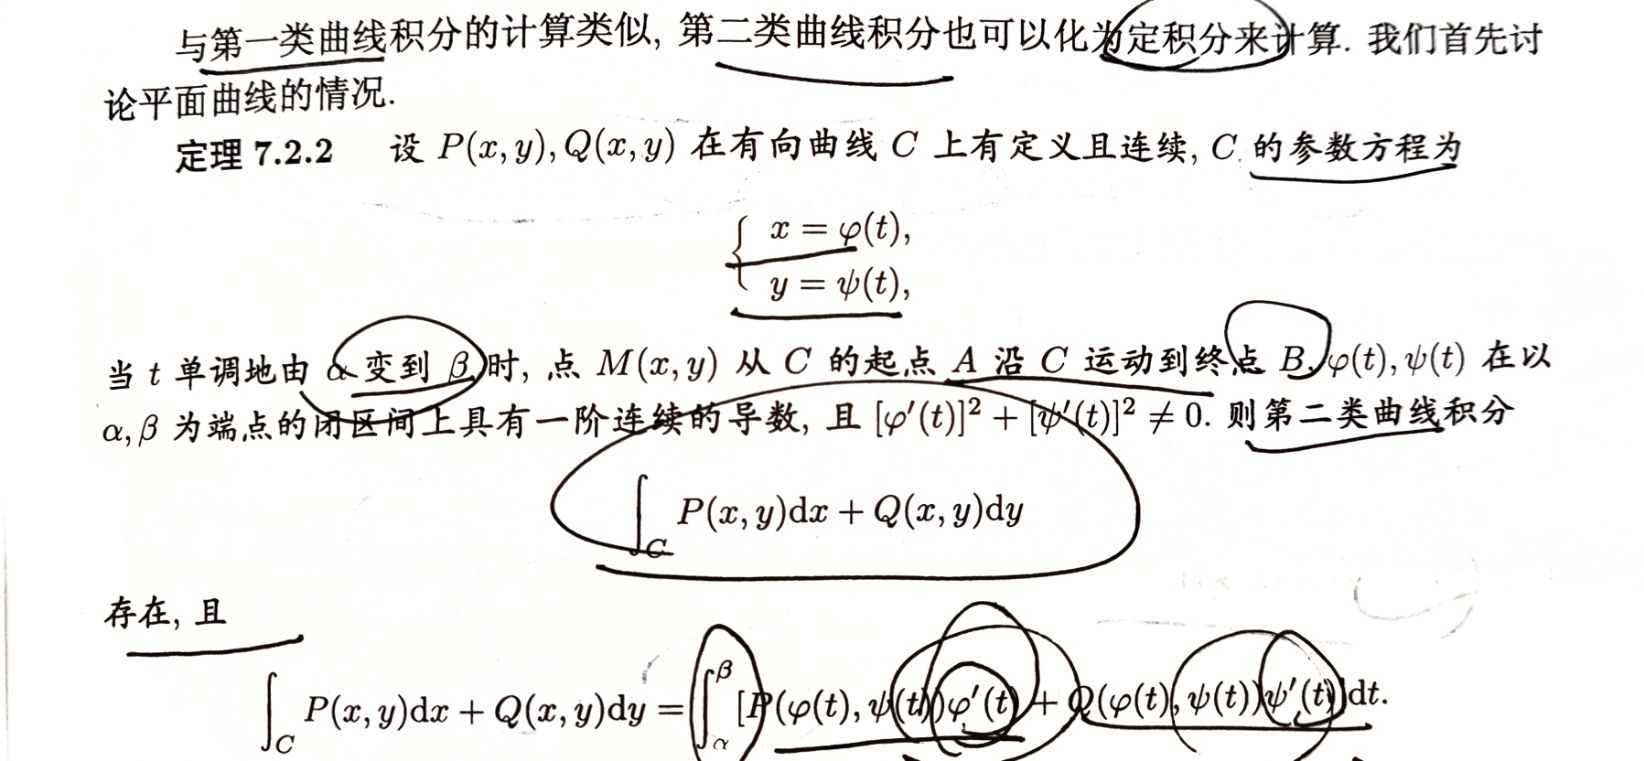 与第一类曲线积分的计算类似, 第二类曲线积分也可以化为定积分来计算. 我们首先讨
论平面曲线的情况.
定理 7.2.2 设 P(x, y), Q(x, y) 在有向曲线 C 上有定义且连续, C 的参数方程为
{ x = φ(t),
y = ψ(t),
当 t 单调地由 α 变到 β 时, 点 M(x, y) 从 C 的起点 A 沿 C 运动到终点 B, φ(t), ψ(t) 在以
α, β 为端点的闭区间上具有一阶连续的导数, 且 [φ′(t)]² + [ψ′(t)]² ≠ 0. 则第二类曲线积分
∫_C P(x, y)dx + Q(x, y)dy
存在, 且
∫_C P(x, y)dx + Q(x, y)dy = ∫_α^β [P(φ(t), ψ(t))φ′(t) + Q(φ(t), ψ(t))ψ′(t)]dt.